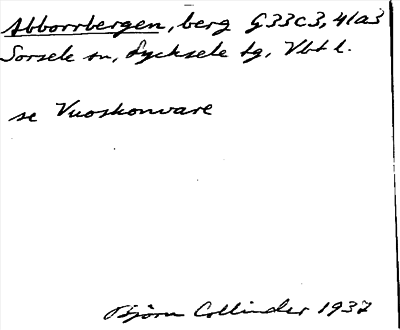 Abborrbergen, berg G33c3, 41a3
Sorsele sn, Lycksele tg, Vbt l.
se Vuoskonvare
Björn Collinder 1937